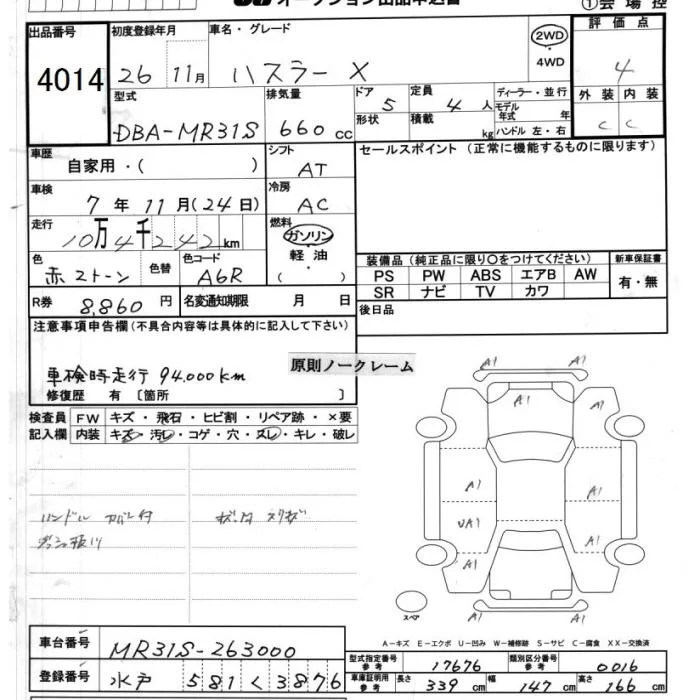 ①会場控
出品番号 4014
初度登録年月 26年 11月
車名・グレード ハスラー X
2WD
4WD
評価点 4
外装 C 内装 C
型式 DBA-MR31S
排気量 660 cc
ドア 5
形状
定員 4 人
積載 kg
ディーラー・並行
モデル年式 年
ハンドル 左・右
車歴 自家用・( )
シフト AT
車検 7年 11月(24日)
冷房 AC
走行 10万4千242km
燃料 ガソリン・軽油・( )
色 赤2トーン 色替
色コード A6R
R券 8,860 円
名変通知期限 月 日
セールスポイント(正常に機能するものに限ります)
装備品(純正品に限り○をつけてください)
新車保証書 有・無
PS PW ABS エアB AW
SR ナビ TV カワ
後日品
注意事項申告欄(不具合内容等は具体的に記入して下さい)
車検時走行 94,000km
修復歴 有 〔箇所 〕
原則ノークレーム
検査員記入欄
FW キズ・飛石・ヒビ割・リペア跡・×要
内装 キズ・汚レ・コゲ・穴・スレ・キレ・破レ
ハンドル カバー付
A1 A1
A1 A1 A1
A1 A1
UA1
A1 A1
A1 A1
スペア
A-キズ E-エクボ U-凹み W-補修跡 S-サビ C-腐食 XX-交換済
車台番号 MR31S-263000
登録番号 水戸 581 く 3876
型式指定番号 参考 17676
類別区分番号 参考 0016
車庫証明用 参考 長さ 339 cm 幅 147 cm 高さ 166 cm